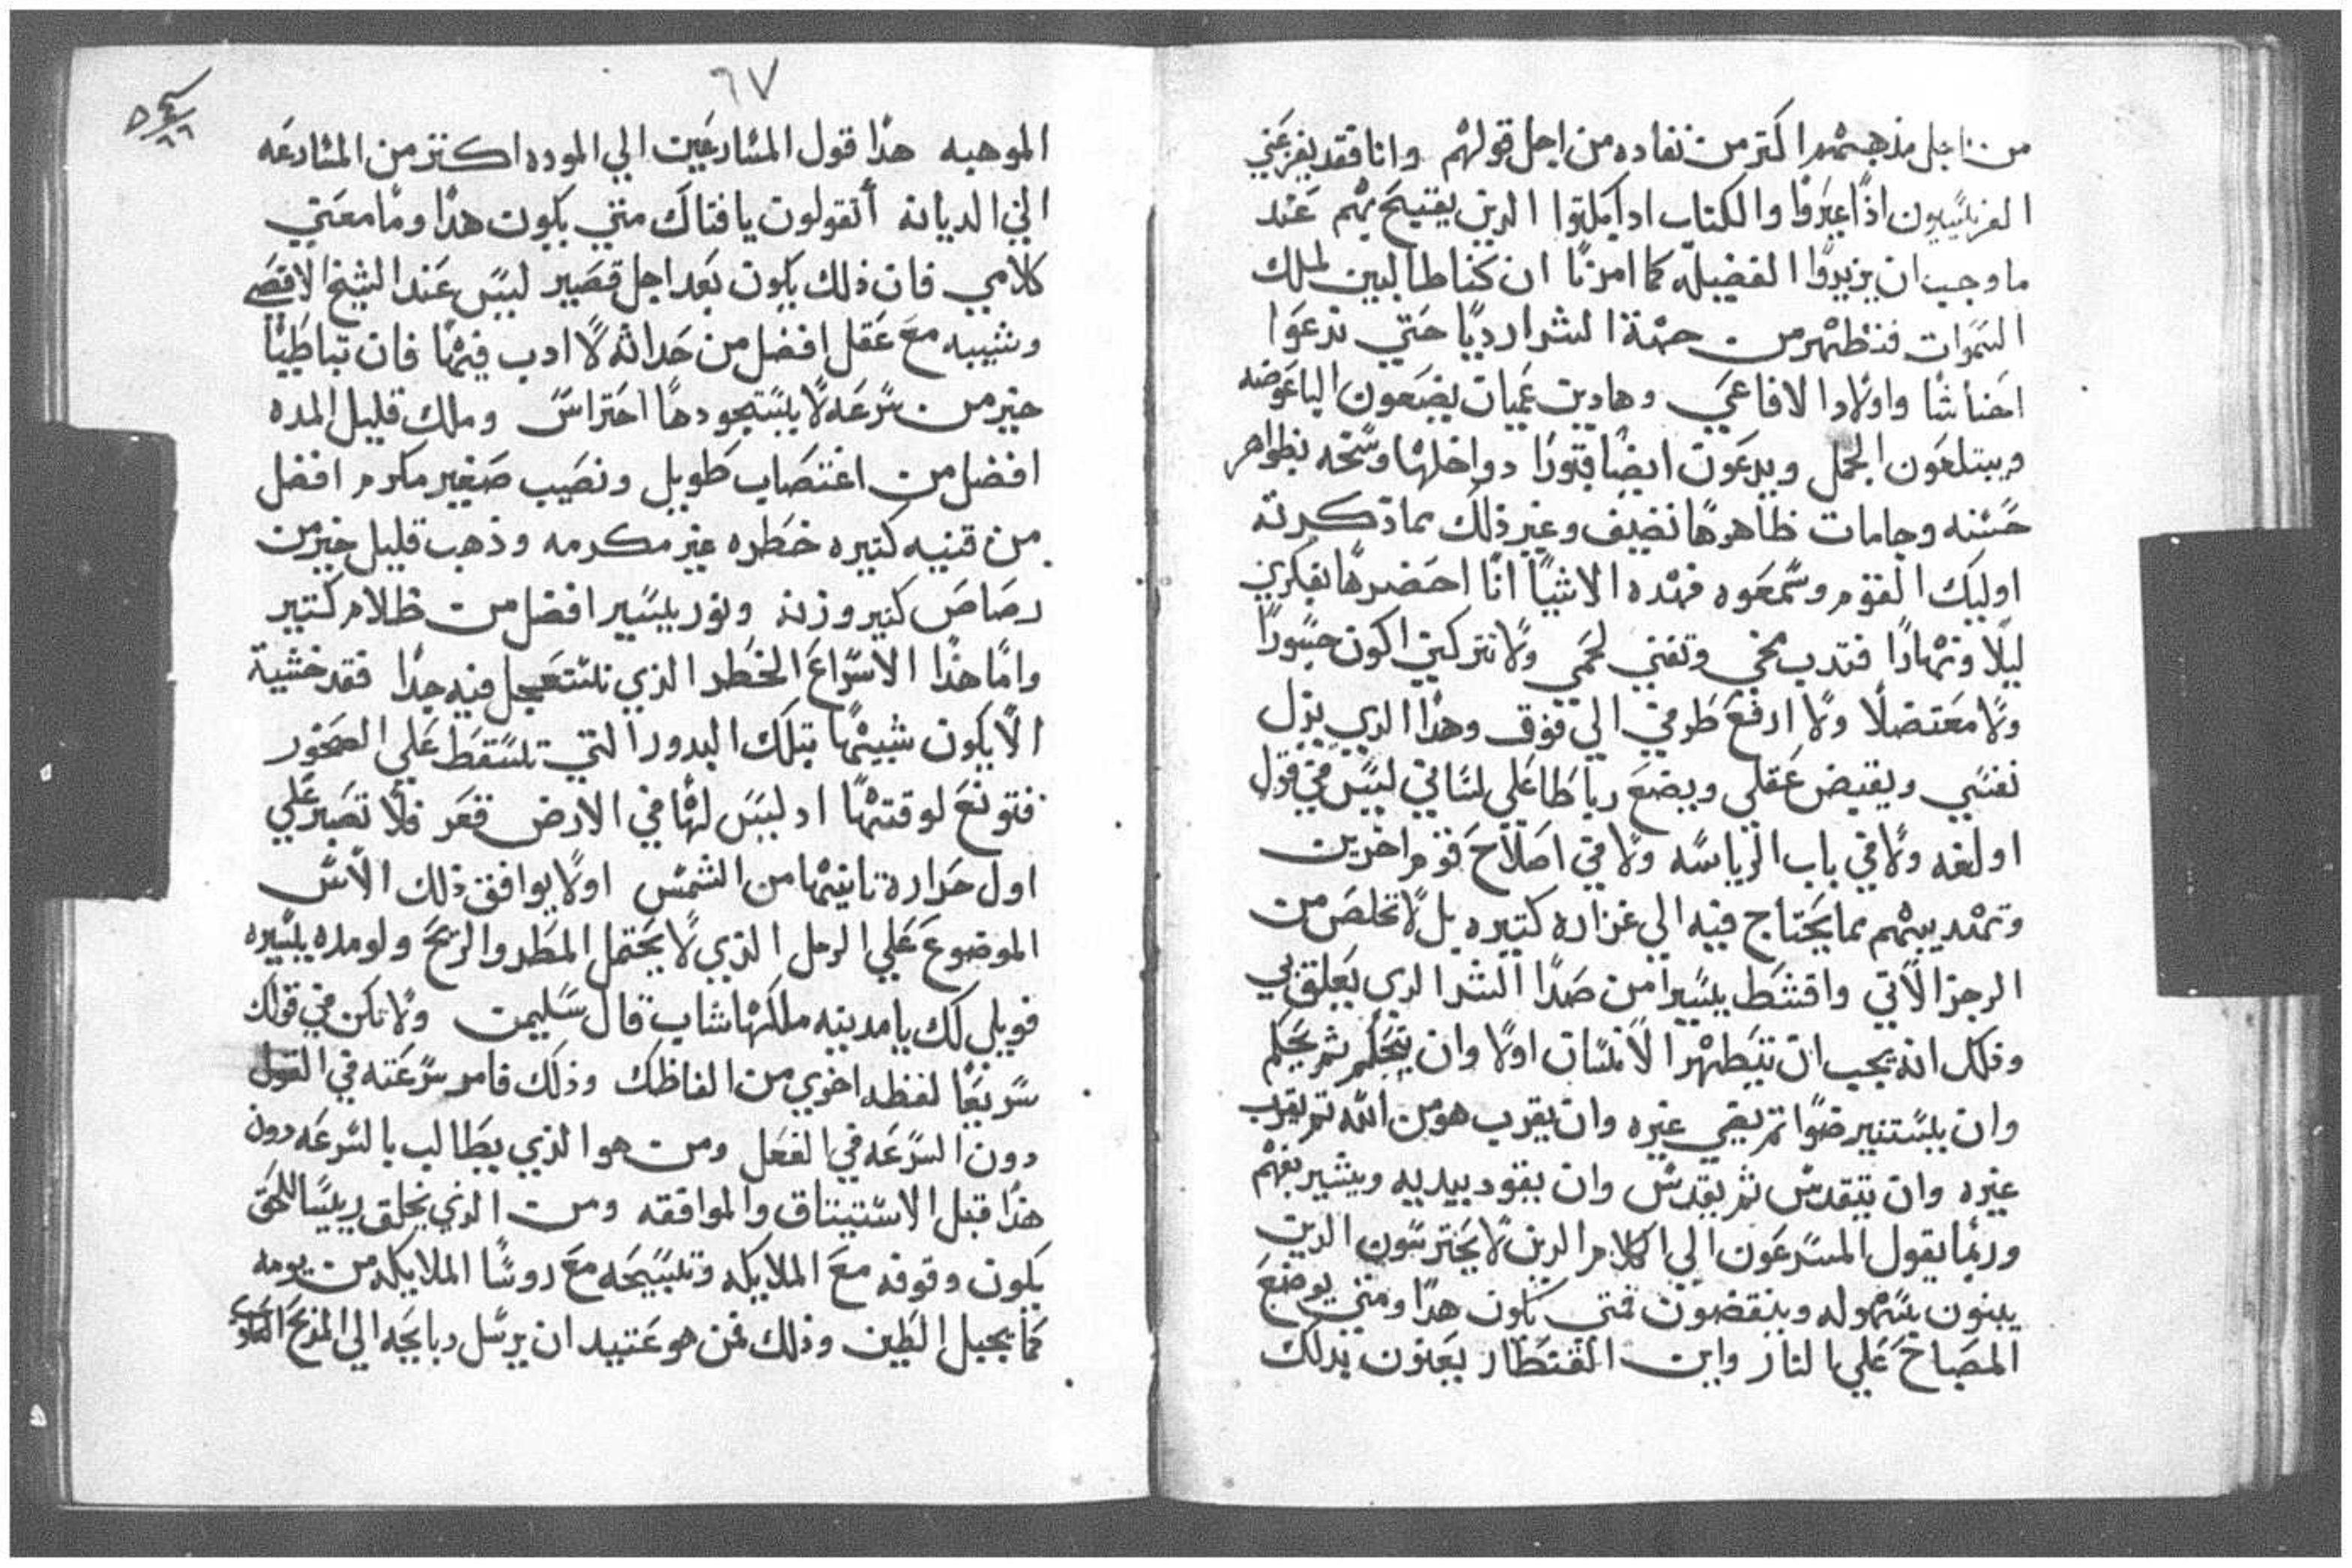 من اجل مذهبهم اكتر من نفاده من اجل قولهم وانا فقد يفزعني
الفريسيون اذا عيروا والكتاب اذا بكتوا الدين يقبح بهم عند
ما وجب ان يزيدوا الفضيله كما امرنا ان كنا طالبين لملك
السموات فنظهر من جهة الشر ارديا حتي ندعوا
احناشا واولاد الافاعي وهادين عميان يضعون الباعوضه
ويبتلعون الجمل ويدعون ايضا قبورا دواخلها وسخه بظواهر
حسنه وجامات ظاهرها نضيف وغير ذلك مما ذكرته
اوليك القوم وسمعوه فهده الاشيا انا احضرها بفكري
ليلا ونهارا فتدب مخي وتفني لحمي ولا تتركني اكون جسورا
ولا معتضلا ولا ارفع طرفي الي فوق وهدا الدي يزل
نفسي ويقبض عقلي ويضع رباطا علي لساني ليس في قول
او لغه ولا في باب الرياسه ولا في اصلاح قوم اخرين
وتهديبهم مما يحتاج فيه الي غزاره كتيره بل لا تخلص من
الرجز الاتي واقشط يسيرا من صدا الشر الدي يعلق بي
وذلك انه يجب ان يتطهر الانسان اولا وان يتحكم ثم يحكم
وان يستنير ضوا تم يضي غيره وان يقرب هو من الله تم يقرب
غيره وان يتقدس ثم يقدس وان يقود بيديه ويشير بفهم
وربما يقول المسرعون الي الكلام الدين لا يحترسون الدين
يبنون بسهوله وينقضون فمتي يكون هدا ومتي يوضع
المصباح علي المنار واين القنطار يعنون بدلك
٦٧
الموهبه هدا قول المسارعين الي الموده اكتر من المسارعه
الي الديانه أتقولون يا فتاك متي يكون هدا وما معني
كلامي فان ذلك يكون بعد اجل قصير ليس عند الشيخ الاقصي
وشيبه مع عقل افضل من حداثه لا ادب فيها فان تباطيا
خير من سرعه لا يستجودها احتراس وملك قليل المده
افضل من اغتصاب طويل ونصيب صغير مكرم افضل
من قنيه كتيره خطره غير مكرمه وذهب قليل خير من
رصاص كتير وزنه ونور يسير افضل من ظلام كتير
واما هذا الاسراع الخطر الذي نستعجل فيه جدا فقد خشية
الا يكون شبيها بتلك البدور التي تسقط علي الصخور
فتونع لوقتها اد ليس لها في الارض قعر فلا تصبر علي
اول حرارة تاتيها من الشمس اولا يوافق ذلك الاس
الموضوع علي الرمل الذي لا يحتمل المطر والريح ولو مده يسيره
فويلي لك يا مدينه ملكها شاب قال سليمن ولا تكن في قولك
سريعا لفظه اخري من الفاظك وذلك فامر سرعته في القول
دون السرعه في الفعل ومن هو الذي يطالب بالسرعه دون
هذا قبل الاستيتاق والموافقه ومن الذي يخلق رييسا للحق
يكون وقوفه مع الملايكه وتسبيحه مع روسا الملايكه من يومه
كما يجبل الطين وذلك فمن هو عتيد ان يرسل دبايحه الي المذبح